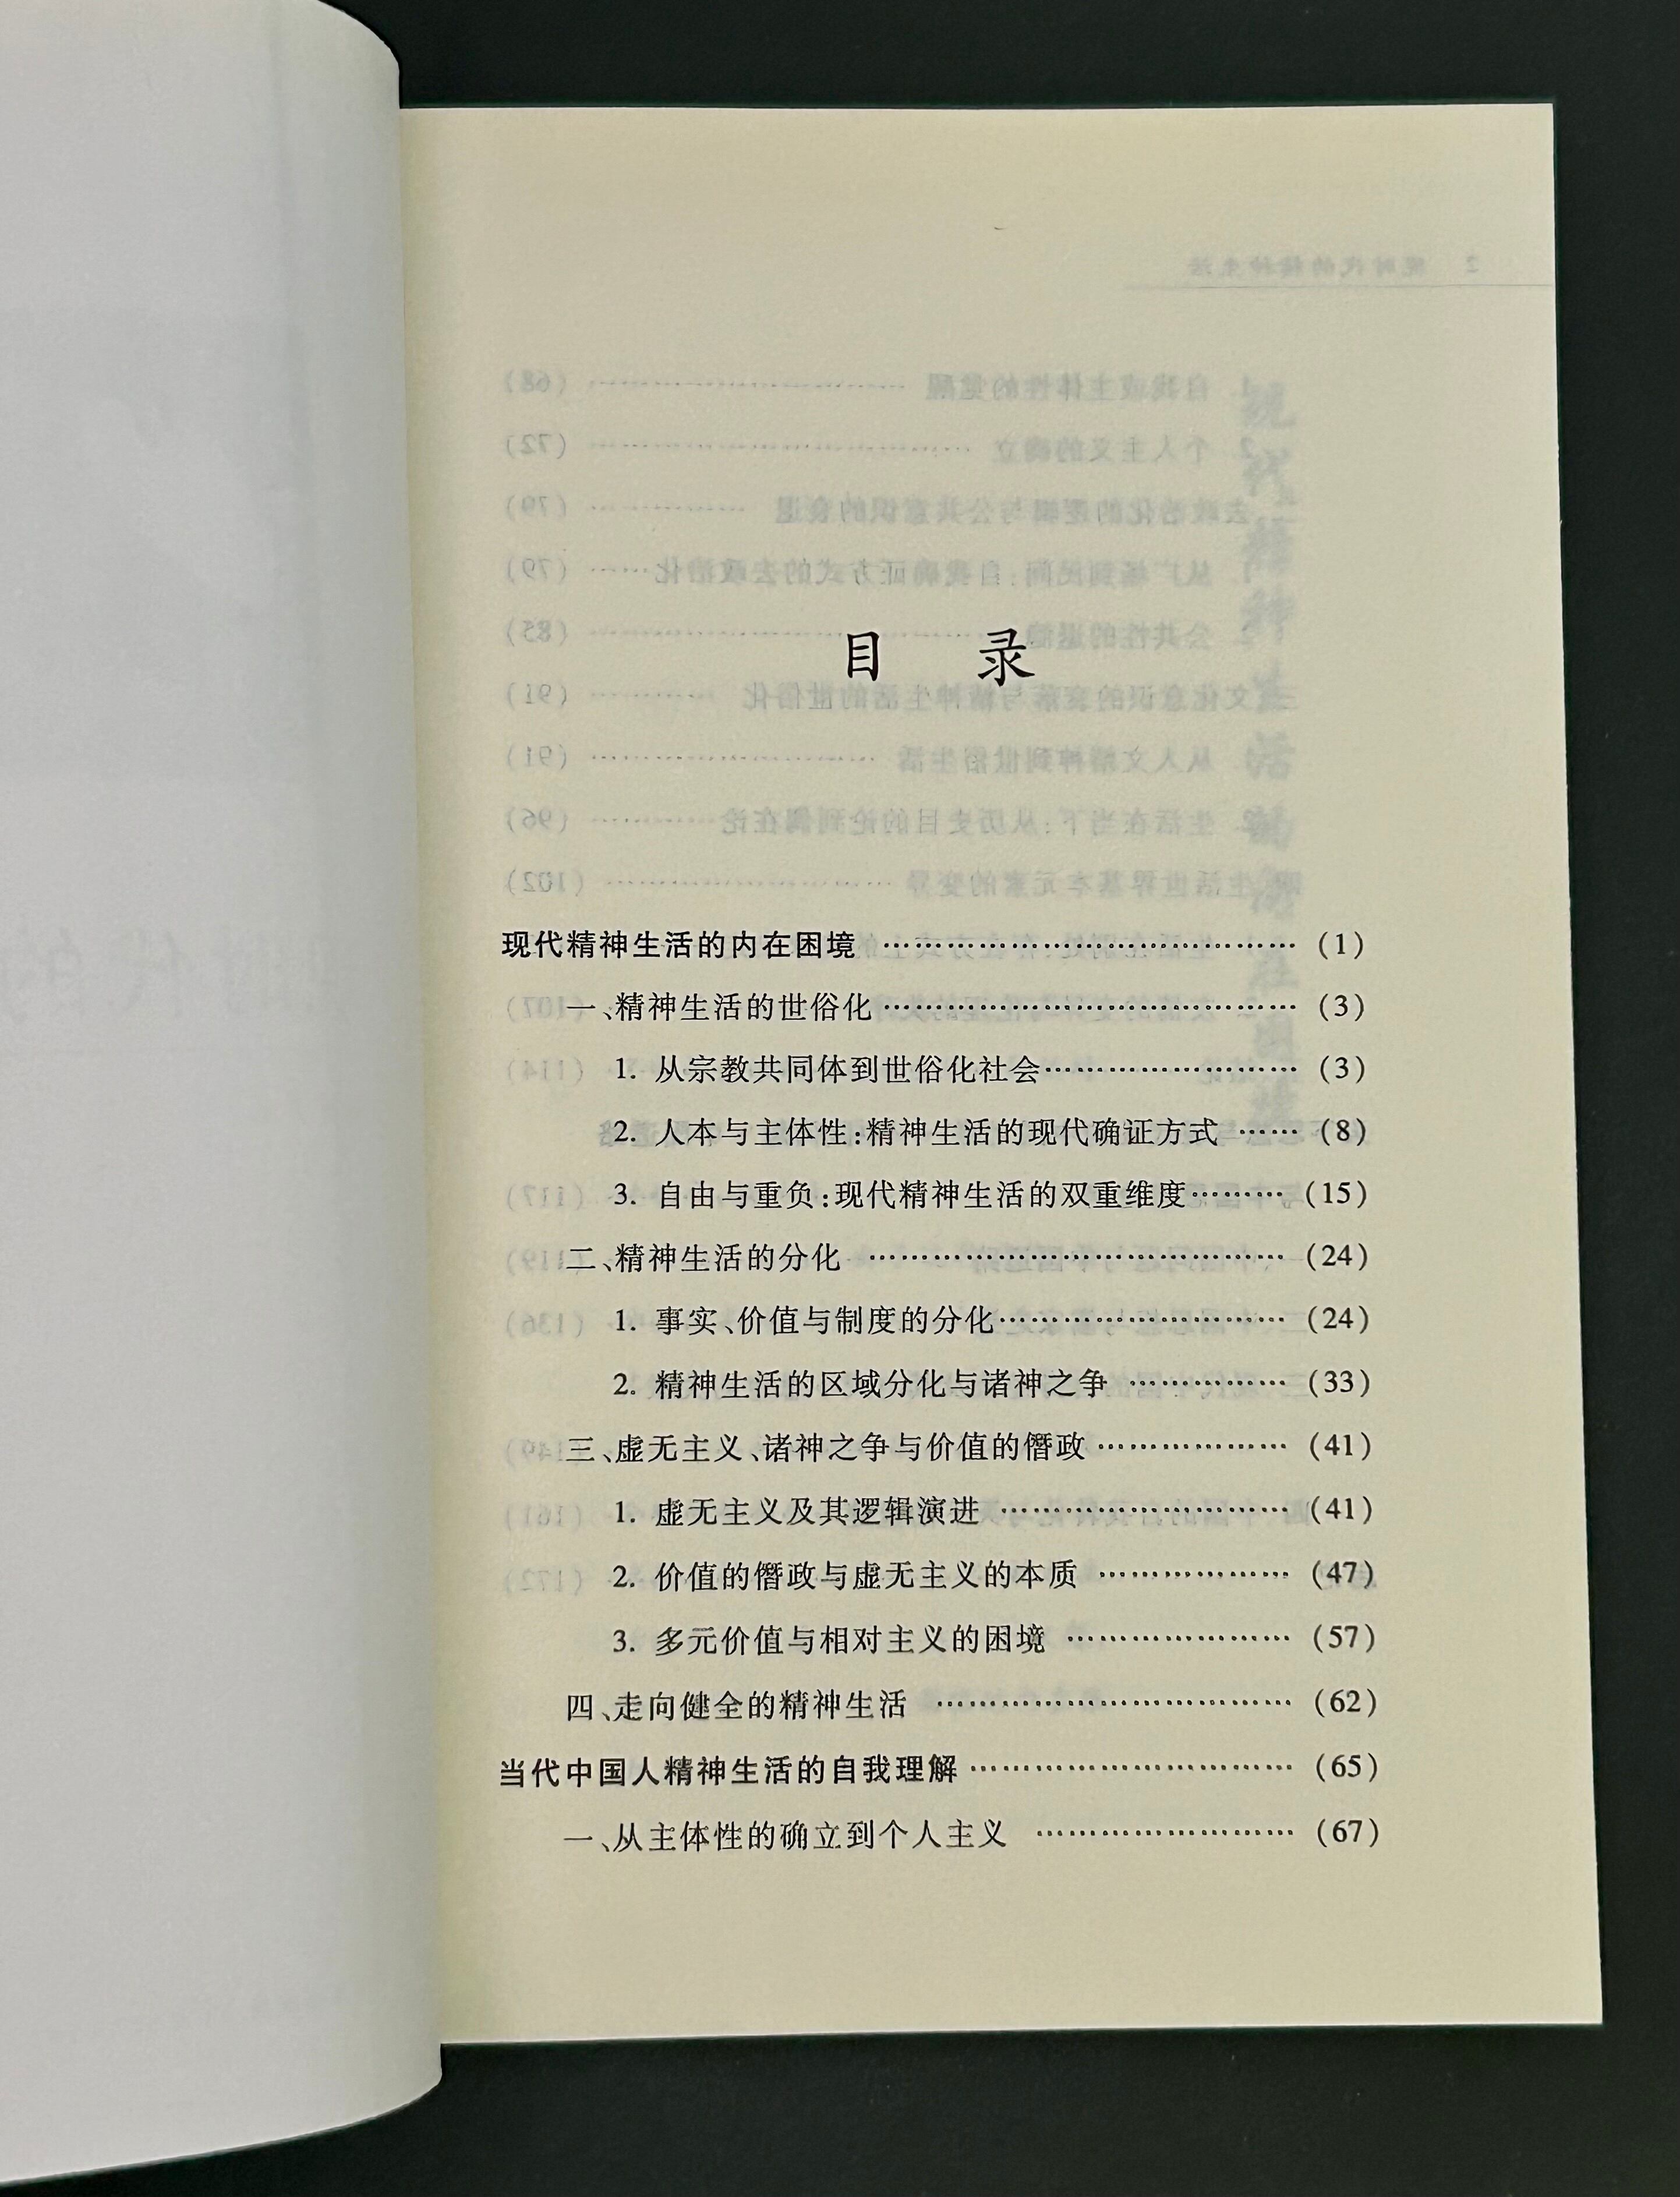 目 录
现代精神生活的内在困境 …………………………………… (1)
一、精神生活的世俗化 …………………………………… (3)
1. 从宗教共同体到世俗化社会…………………… (3)
2. 人本与主体性:精神生活的现代确证方式 …… (8)
3. 自由与重负:现代精神生活的双重维度……… (15)
二、精神生活的分化 …………………………………… (24)
1. 事实、价值与制度的分化……………………… (24)
2. 精神生活的区域分化与诸神之争 …………… (33)
三、虚无主义、诸神之争与价值的僭政 ……………… (41)
1. 虚无主义及其逻辑演进 ……………………… (41)
2. 价值的僭政与虚无主义的本质 ……………… (47)
3. 多元价值与相对主义的困境 ………………… (57)
四、走向健全的精神生活 ……………………………… (62)
当代中国人精神生活的自我理解 ………………………… (65)
一、从主体性的确立到个人主义 …………………… (67)